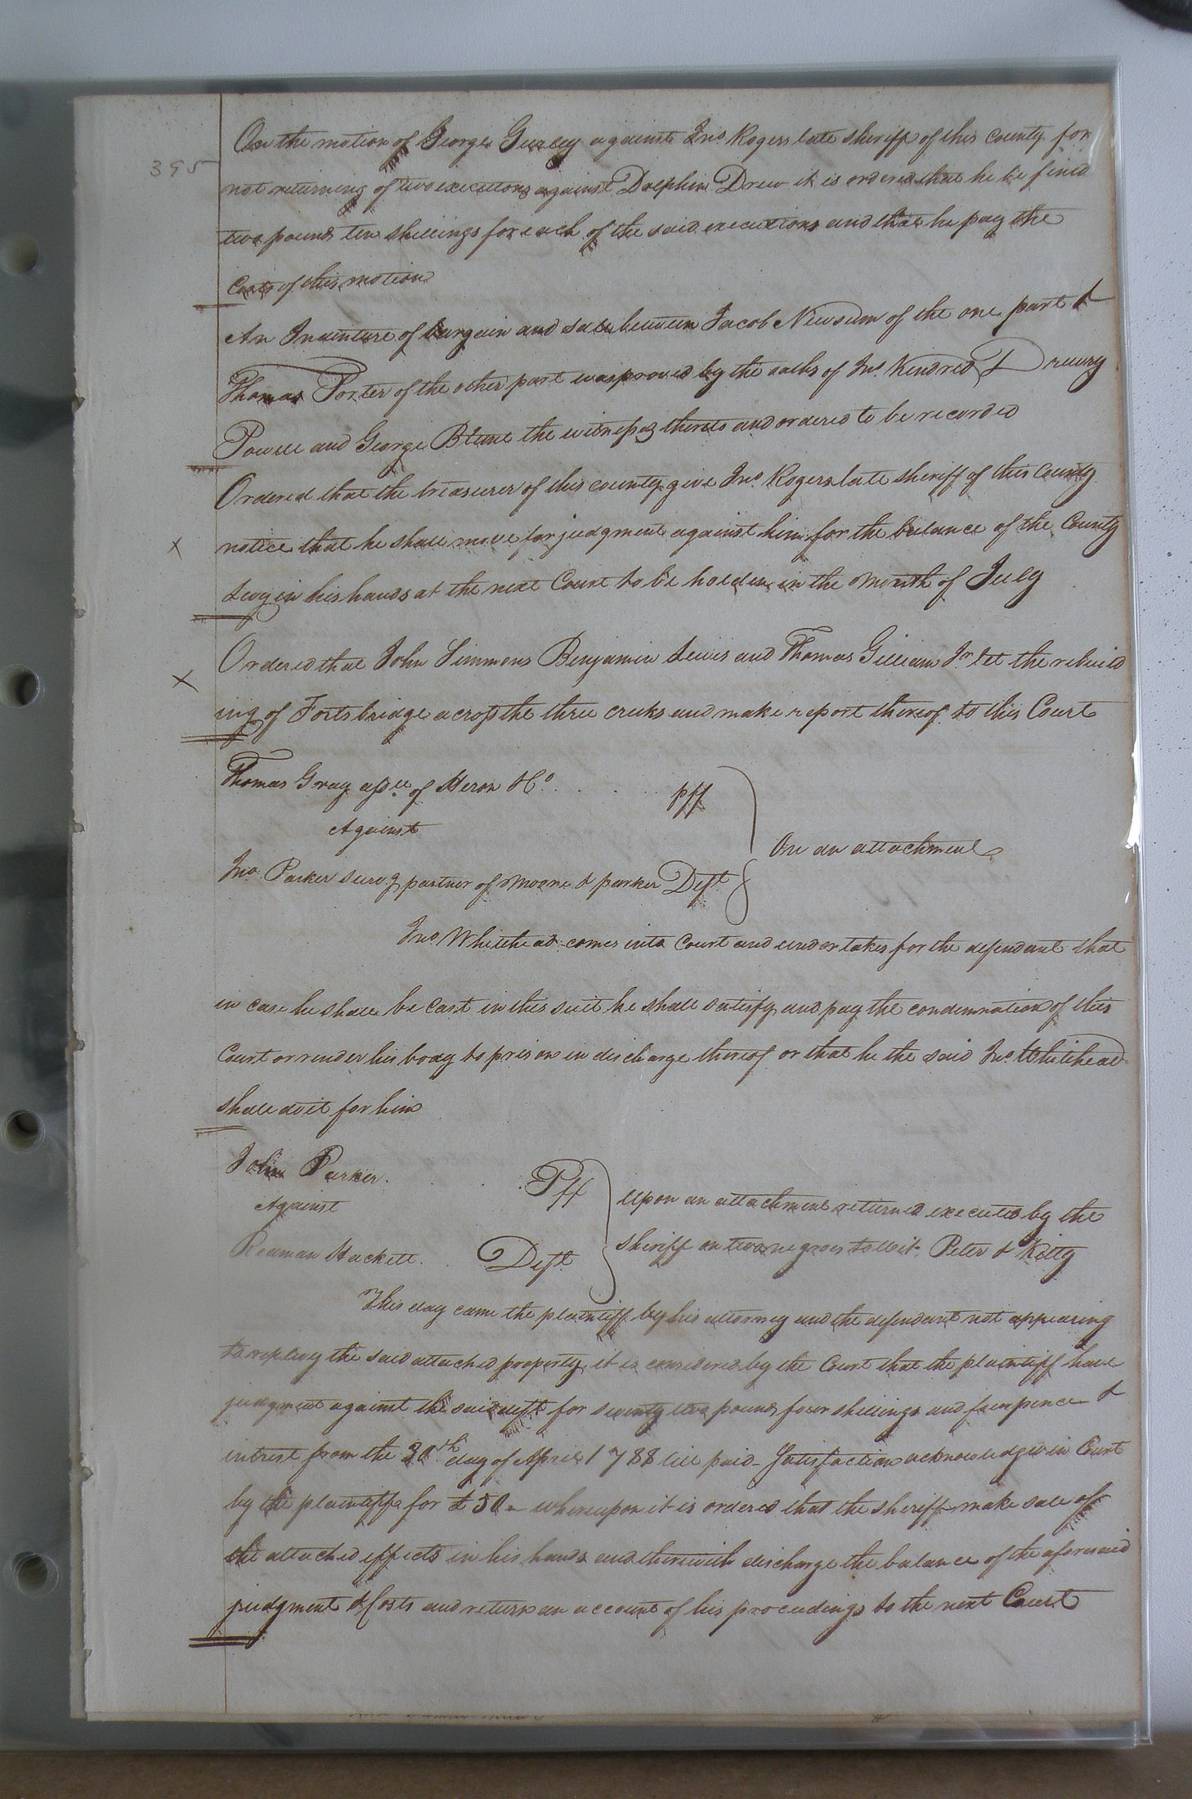 395
On the motion of George Gurley against Jno. Rogers late sheriff of this county for
not returning of two executions against Dolphin Drew it is ordered that he be fined
two pounds ten shillings for each of the said executions and that he pay the
Costs of this motion
An Indenture of bargain and sale between Jacob Newsum of the one part &
Thomas Porter of the other part was proved by the oaths of Jno. Kindred Drewry
Powell and George Blunt the witnesses thereto and ordered to be recorded
Ordered that the treasurer of this county give Jno. Rogers late sheriff of this County
x notice that he shall move for judgment against him for the balance of the County
Levy in his hands at the next Court to be holden in the month of July
x Ordered that John Simmons Benjamin Lewis and Thomas Gilliam Jr. let the rebuild
ing of Forts bridge across the three creeks and make report thereof to this Court
Thomas Gray assee. of Heron & Co. Pff
Against
On an attachment
Jno. Parker survg. partner of Moore & parker Deft
Jno. Whitehead comes into Court and undertakes for the defendant that
in case he shall be Cast in this suit he shall satisfy and pay the condemnation of this
Court or render his body to prison in discharge thereof or that he the said Jno. Whitehead
shall do it for him
John Parker. Pff
Upon an attachment returned executed by the
Against
sheriff on two negroes to Wit. Peter & Kitty
Hackett. Deft
This day came the plaintiff by his attorney and the defendant not appearing
to replevy the said attached property, it is considered by the Court that the plaintiff have
judgment against the said deft for seventy two pounds four shillings and pence &
intrest from the 30th day of April 1788 till paid - Satisfaction acknowledged in Court
by the plaintiff for £50 - whereupon it is ordered that the sheriff make sale of
the attached effects in his hands and therewith discharge the balance of the aforesaid
judgment & Costs and return an account of his proceedings to the next Court